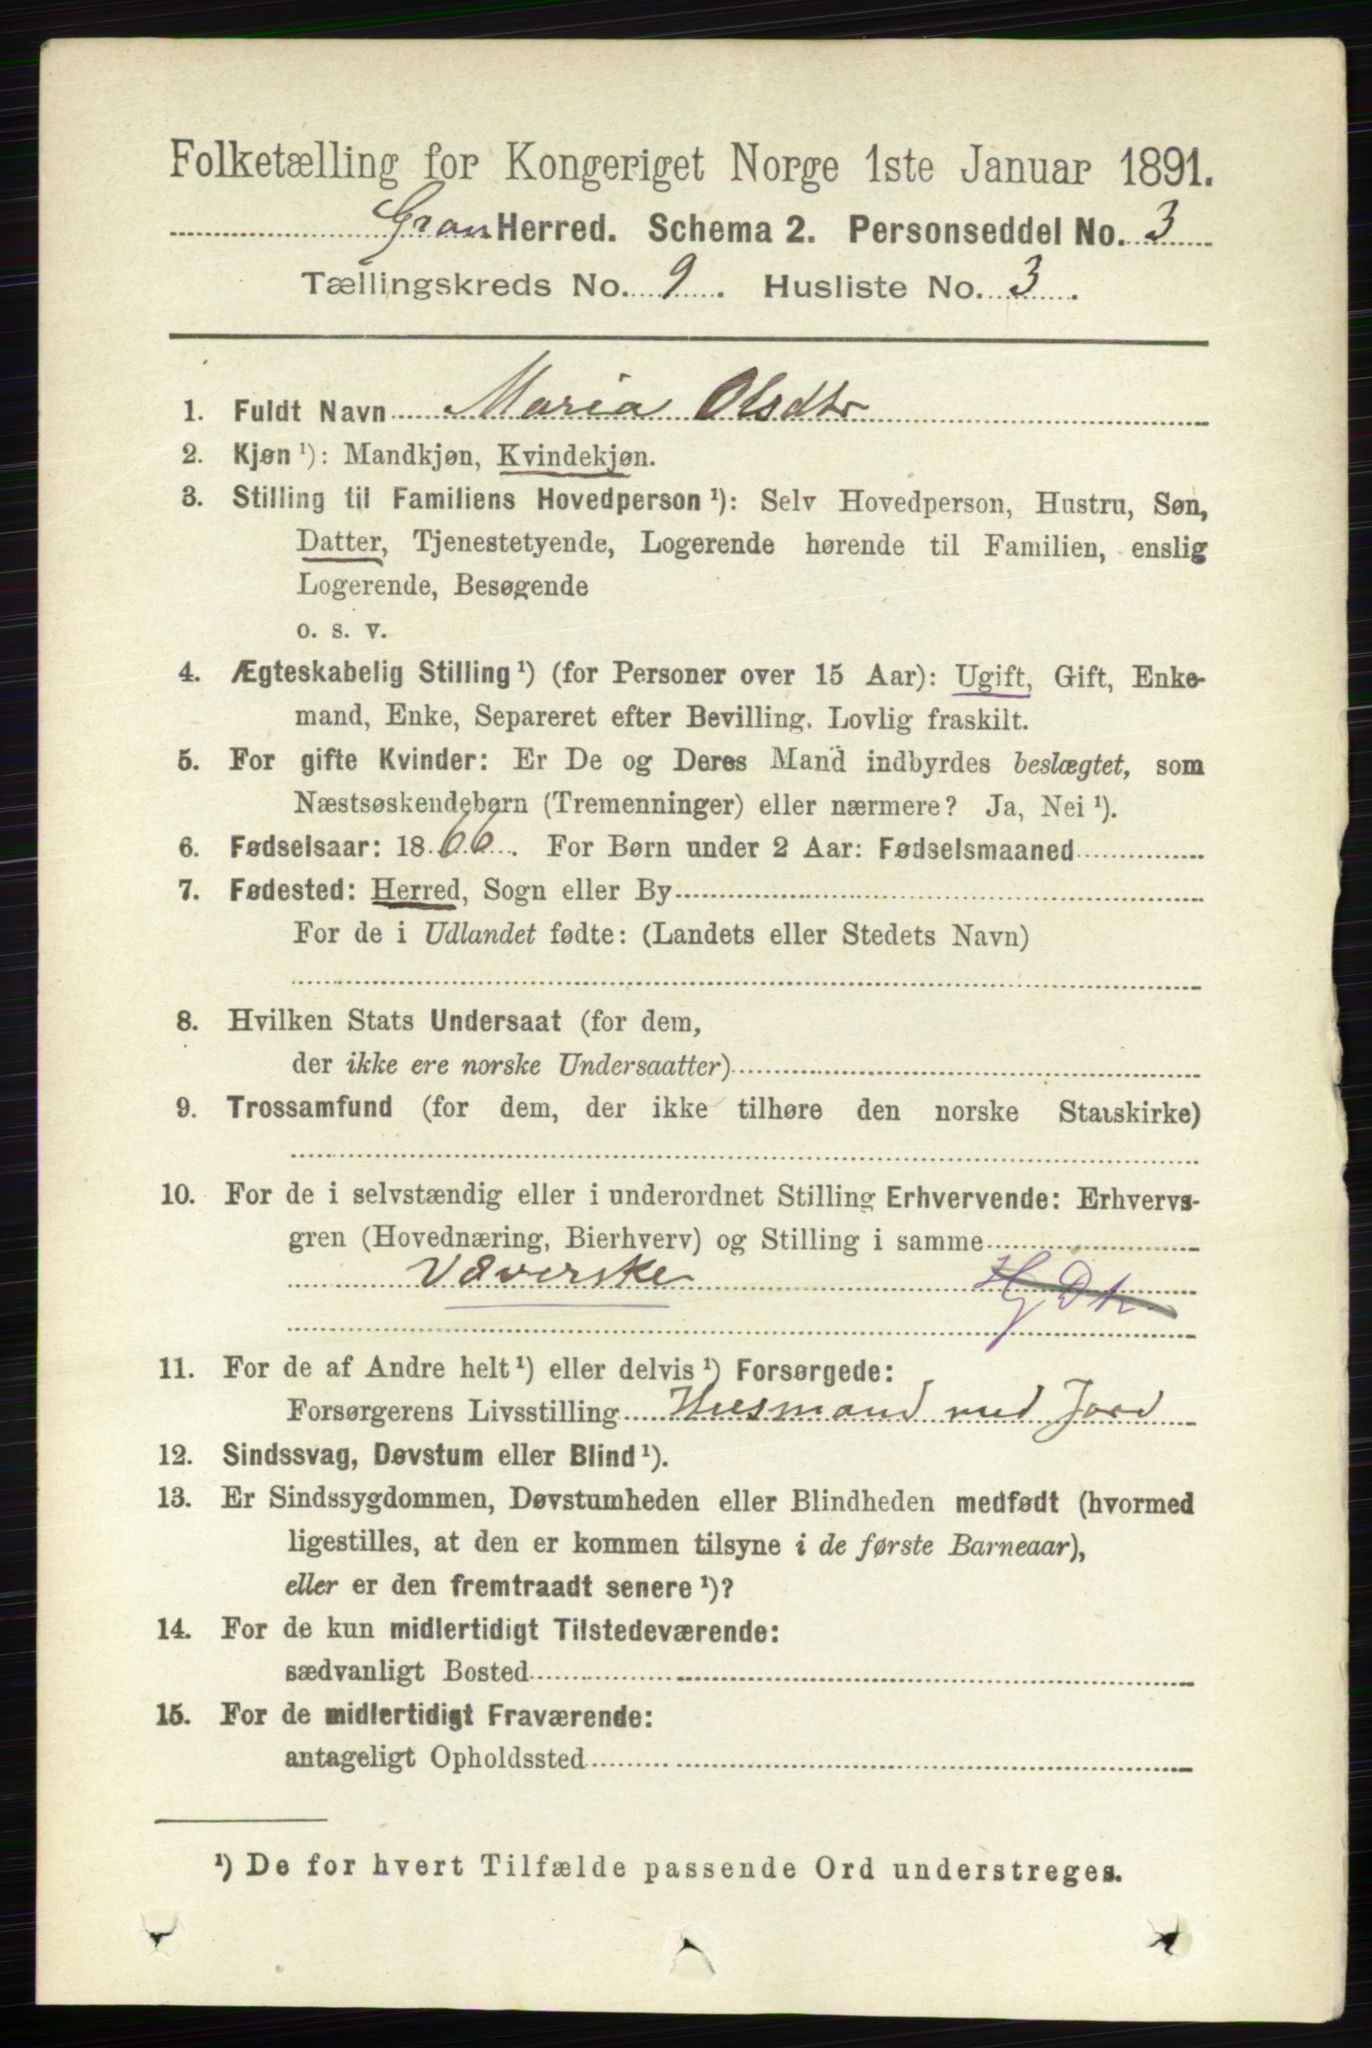 Folketælling for Kongeriget Norge 1ste Januar 1891.
Gran Herred. Schema 2. Personseddel No. 3
Tællingskreds No. 9. Husliste No. 3.
1. Fuldt Navn Maria Olsdtr
2. Kjøn ¹): Mandkjøn, Kvindekjøn.
3. Stilling til Familiens Hovedperson ¹): Selv Hovedperson, Hustru, Søn,
Datter, Tjenestetyende, Logerende hørende til Familien, enslig
Logerende, Besøgende
o. s. v.
4. Ægteskabelig Stilling ¹) (for Personer over 15 Aar): Ugift, Gift, Enke-
mand, Enke, Separeret efter Bevilling. Lovlig fraskilt.
5. For gifte Kvinder: Er De og Deres Mand indbyrdes beslægtet, som
Næstsøskendebørn (Tremenninger) eller nærmere? Ja, Nei ¹).
6. Fødselsaar: 1866. For Børn under 2 Aar: Fødselsmaaned
7. Fødested: Herred, Sogn eller By
For de i Udlandet fødte: (Landets eller Stedets Navn)
8. Hvilken Stats Undersaat (for dem,
der ikke ere norske Undersaatter)
9. Trossamfund (for dem, der ikke tilhøre den norske Statskirke)
10. For de i selvstændig eller i underordnet Stilling Erhvervende: Erhvervs-
gren (Hovednæring, Bierhverv) og Stilling i samme
Væverske
11. For de af Andre helt ¹) eller delvis ¹) Forsørgede:
Forsørgerens Livsstilling Husmand med Jord
12. Sindssvag, Døvstum eller Blind ¹).
13. Er Sindssygdommen, Døvstumheden eller Blindheden medfødt (hvormed
ligestilles, at den er kommen tilsyne i de første Barneaar),
eller er den fremtraadt senere ¹)?
14. For de kun midlertidigt Tilstedeværende:
sædvanligt Bosted
15. For de midlertidigt Fraværende:
antageligt Opholdssted
¹) De for hvert Tilfælde passende Ord understreges.